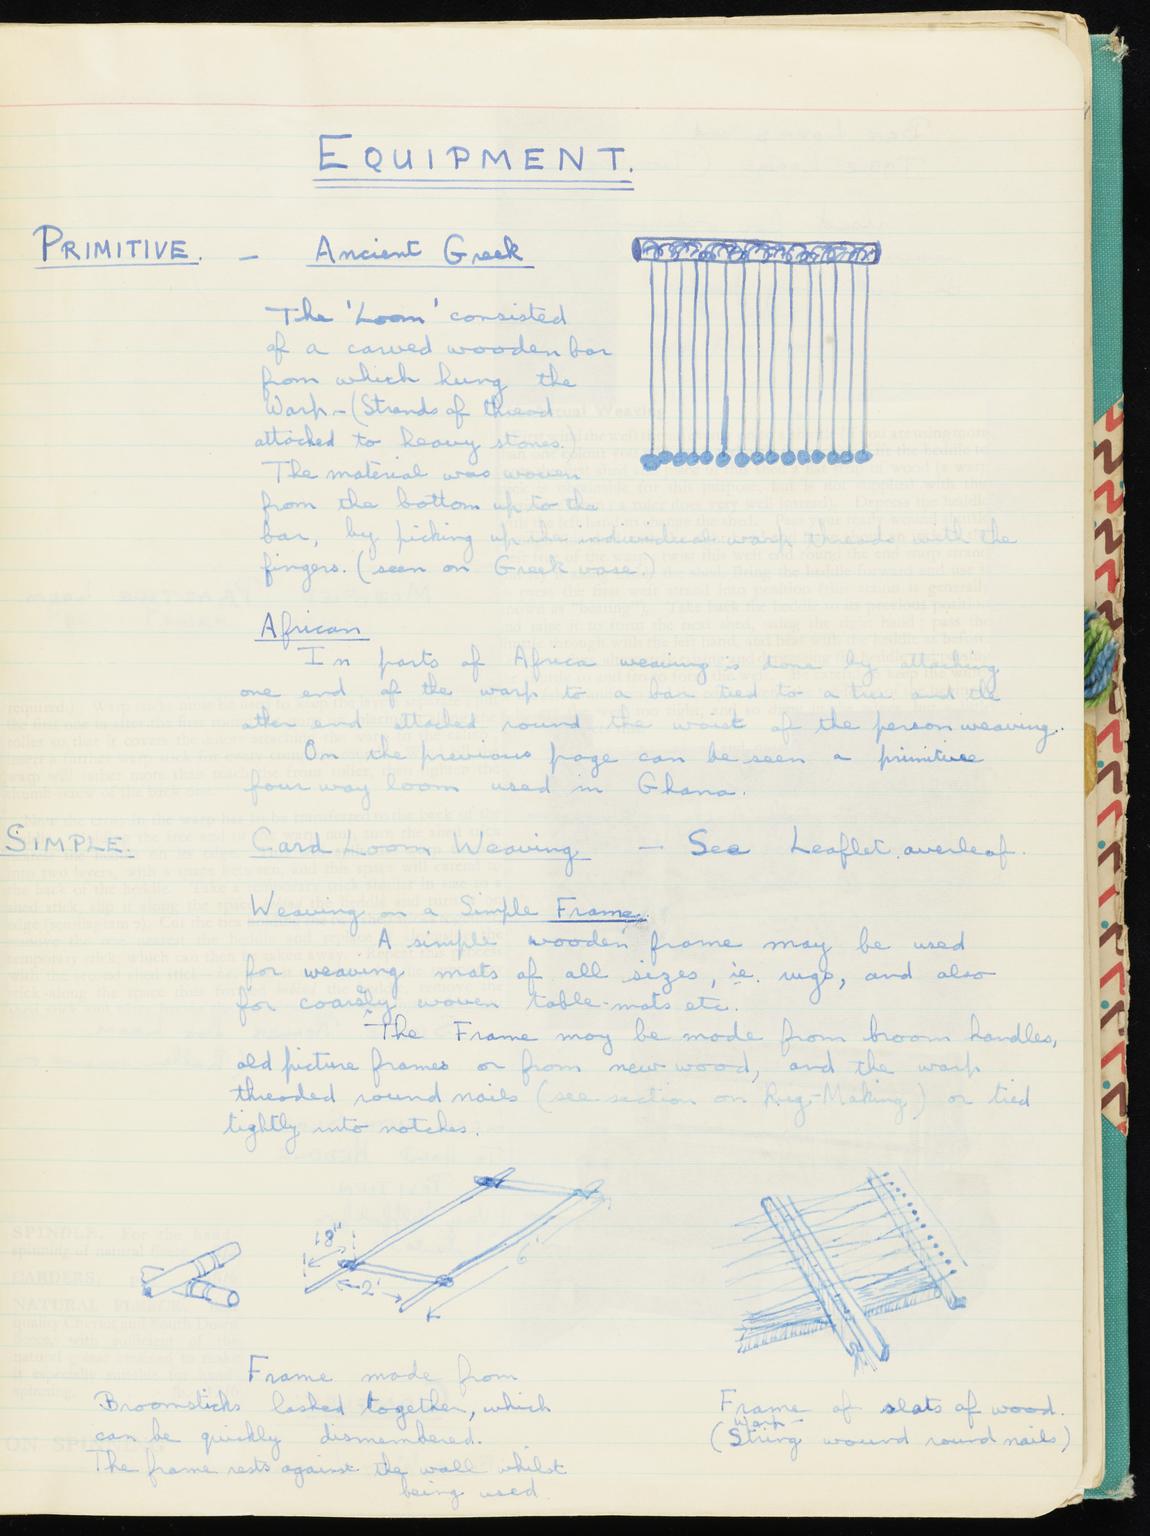 EQUIPMENT.
PRIMITIVE. - Ancient Greek
The 'Loom' consisted
of a carved wooden bar
from which hung the
Warp - (Strands of thread
attached to heavy stones.)
The material was woven
from the bottom up to the
bar, by picking up the individual warp threads with the
fingers. (seen on Greek vase.)
African
In parts of Africa weaving is done by attaching
one end of the warp to a bar tied to a tree and the
other end attached round the waist of the person weaving.
On the previous page can be seen a primitive
four way loom used in Ghana.
SIMPLE. Card Loom Weaving - See Leaflet overleaf.
Weaving on a Simple Frame.
A simple wooden frame may be used
for weaving mats of all sizes, ie. rugs, and also
for coarsely woven table-mats etc.
The Frame may be made from broom handles,
old picture frames or from new wood, and the warp
threaded round nails (see section on Rug-Making) or tied
tightly into notches.
18"
2'
6'
Frame made from
Broomsticks lashed together, which
can be quickly dismembered.
The frame rests against the wall whilst
being used.
Frame of slats of wood.
Warp -
(String wound round nails)